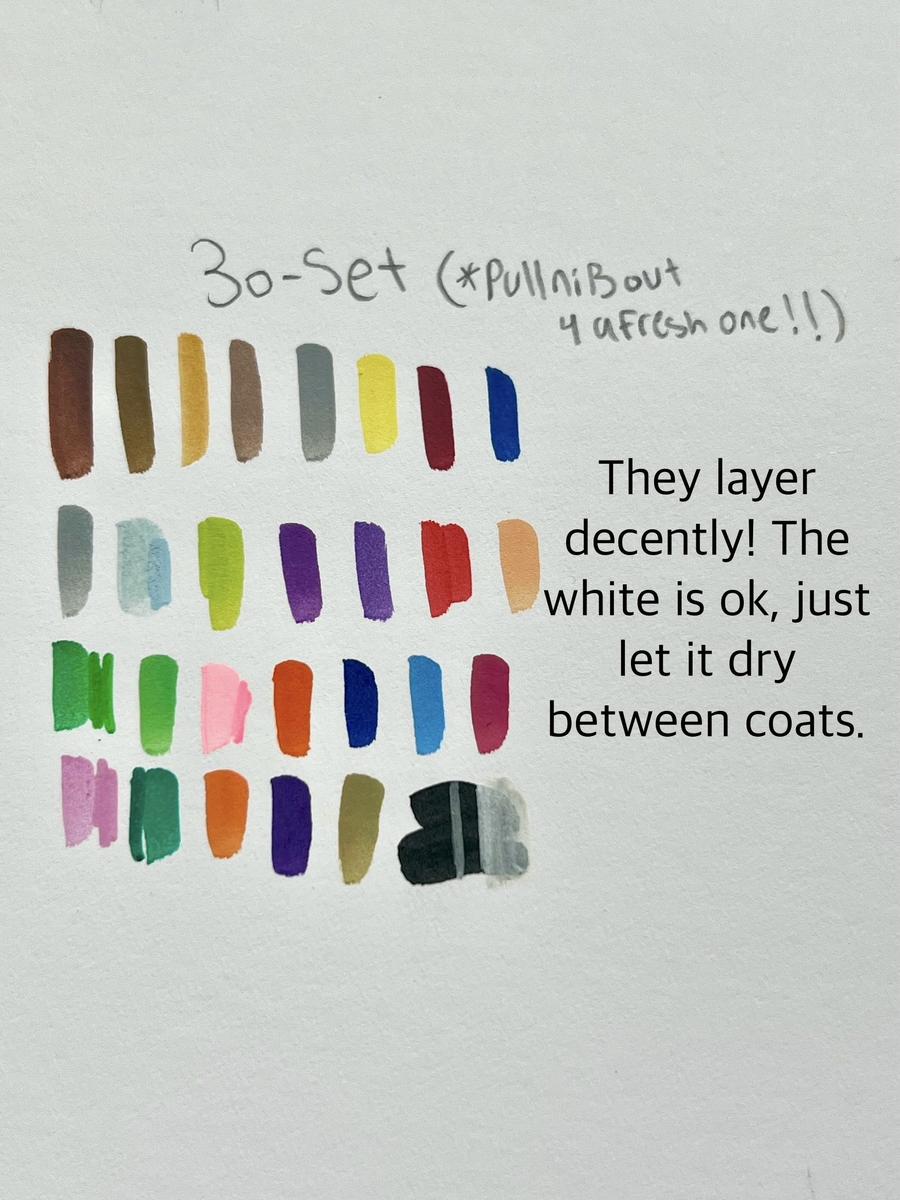 30-Set (*PullniBout
4 aFresh one!!)
They layer
decently! The
white is ok, just
let it dry
between coats.